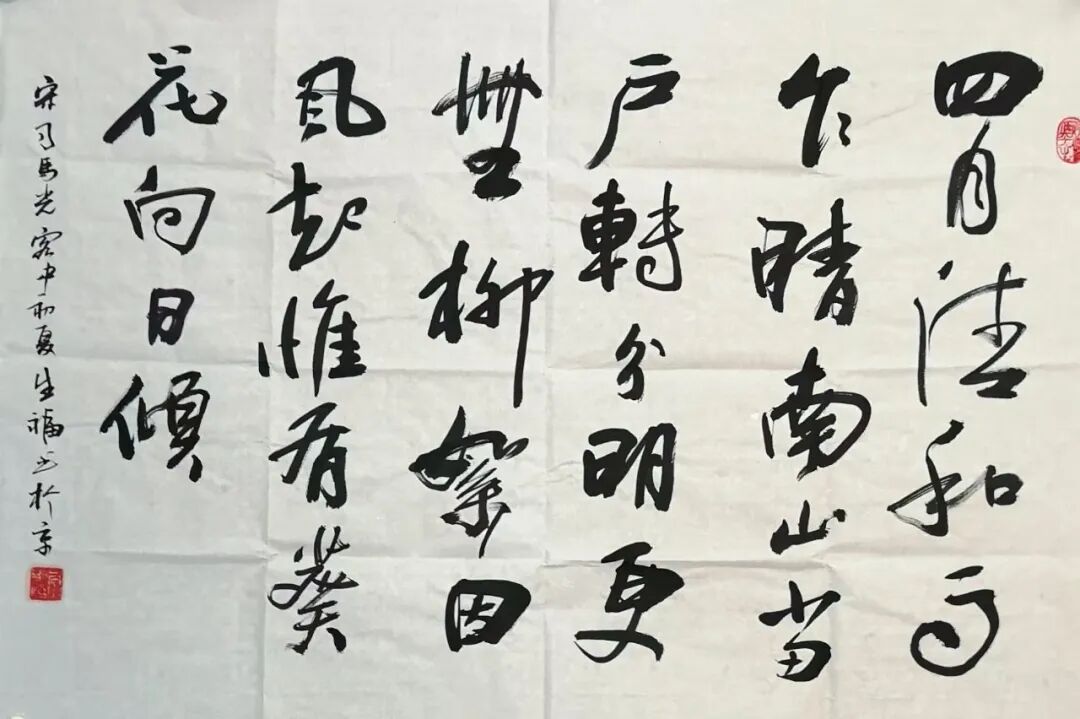 四月清和雨
乍晴南山當
户轉分明更
無柳絮因
風起惟有葵
花向日傾
宋司馬光客中初夏生福书於京